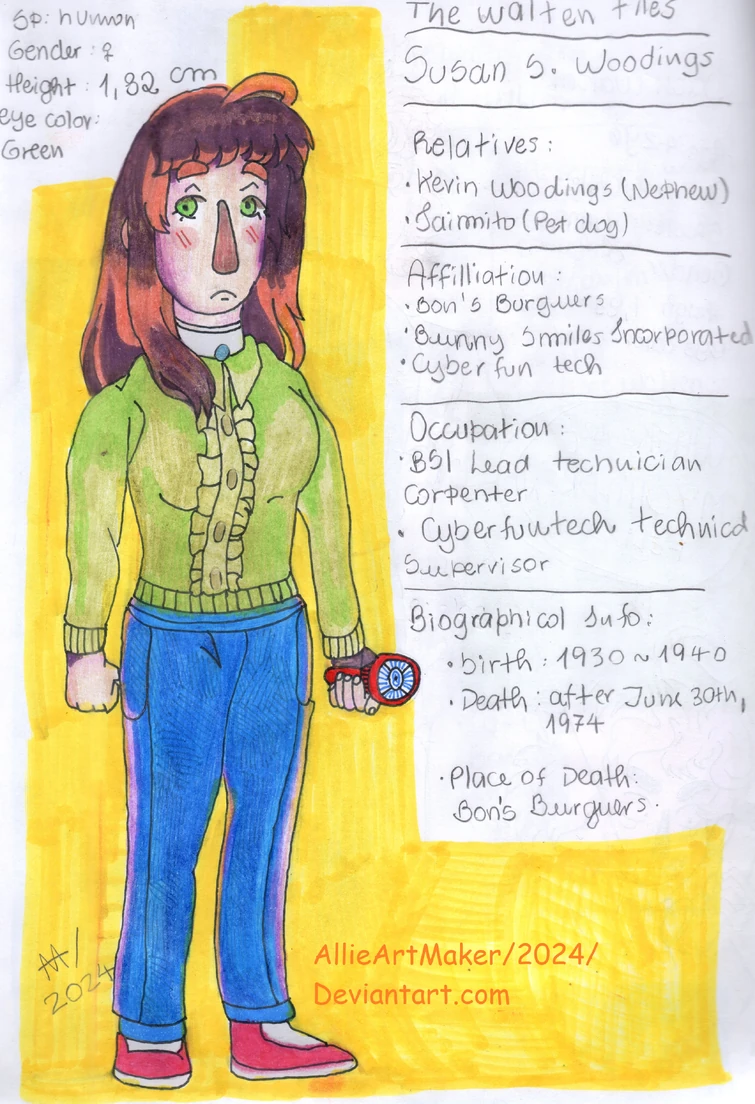 Sp: human
Gender: ♀
Height: 1,82 cm
eye color:
Green
The walten files
Susan S. Woodings
Relatives:
• Kevin Woodings (Nephew)
• Jaimito (Pet dog)
Affilliation:
• Bon's Burguers
• Bunny Smiles Incorporated
• Cyberfun tech
Occupation:
• BSI Lead technician
Carpenter
• Cyberfuntech technical
Supervisor
Biographical Info:
• birth: 1930 ~ 1940
• Death: after June 30th,
1974
• Place of Death:
Bon's Burguers.
AA/
2024
AllieArtMaker/2024/
Deviantart.com